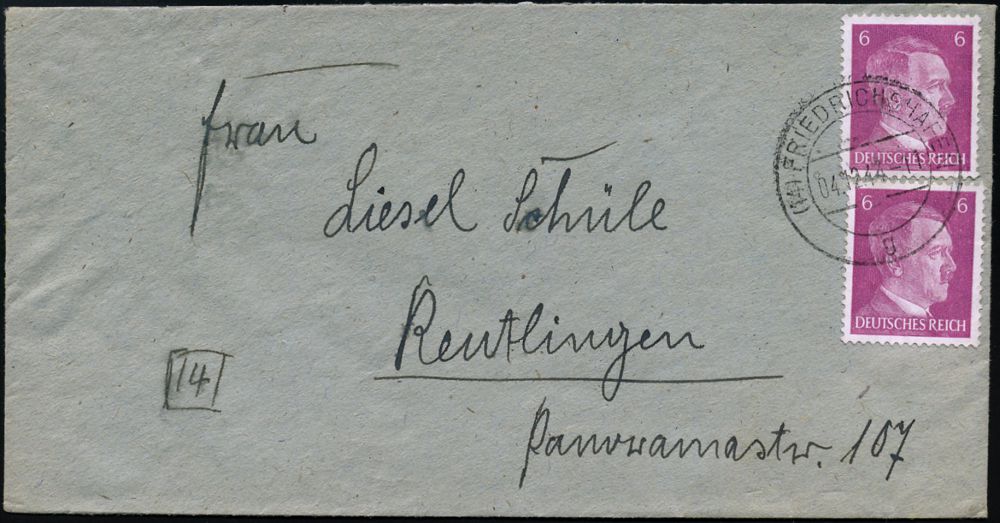 6 6
DEUTSCHES REICH
(14) FRIEDRICHSHAFEN
04.12.44
g
6 6
DEUTSCHES REICH
Frau
Liesel Schüle
Reutlingen
14
Panoramastr. 107